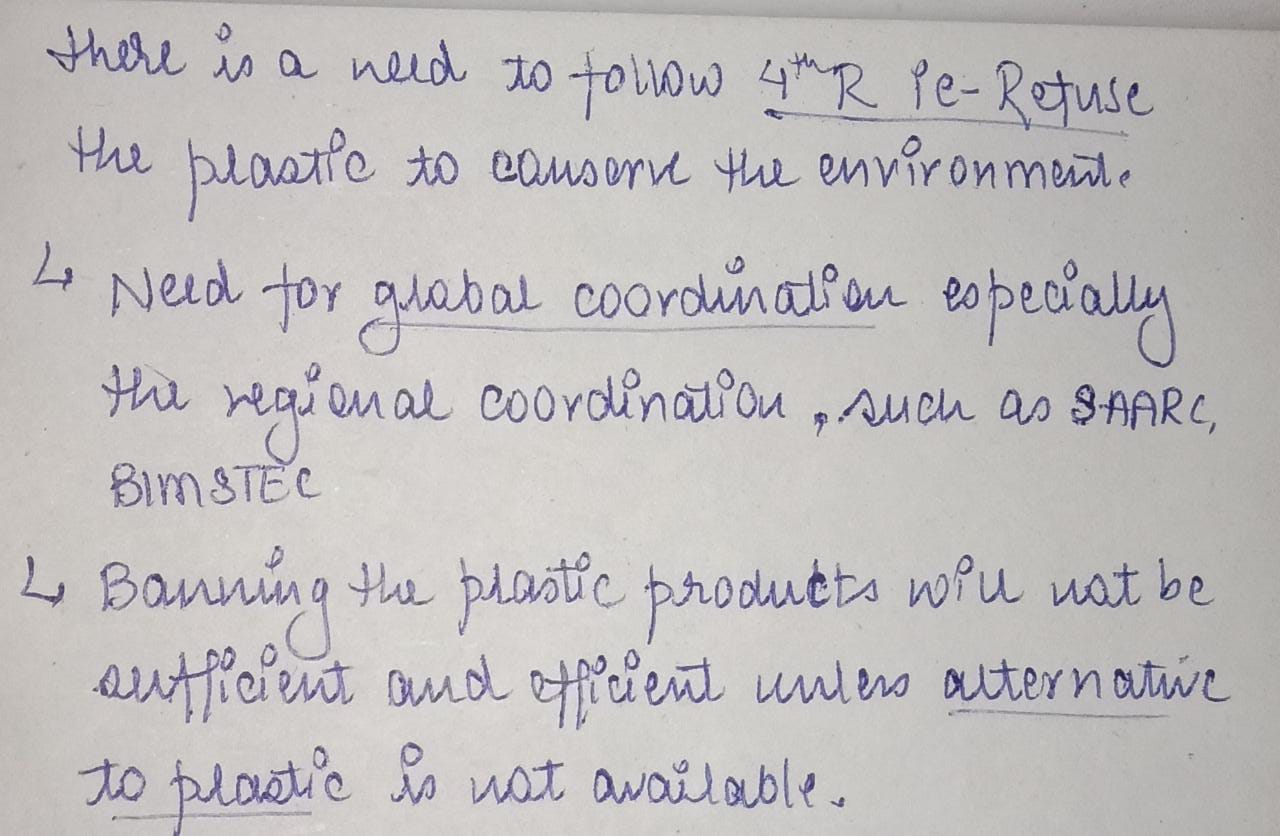 there is a need to follow 4th R ie- Refuse
the plastic to conserve the environment.
↳ Need for global coordination especially
the regional coordination, such as SAARC,
BIMSTEC
↳ Banning the plastic products will not be
sufficient and efficient unless alternative
to plastic is not available.